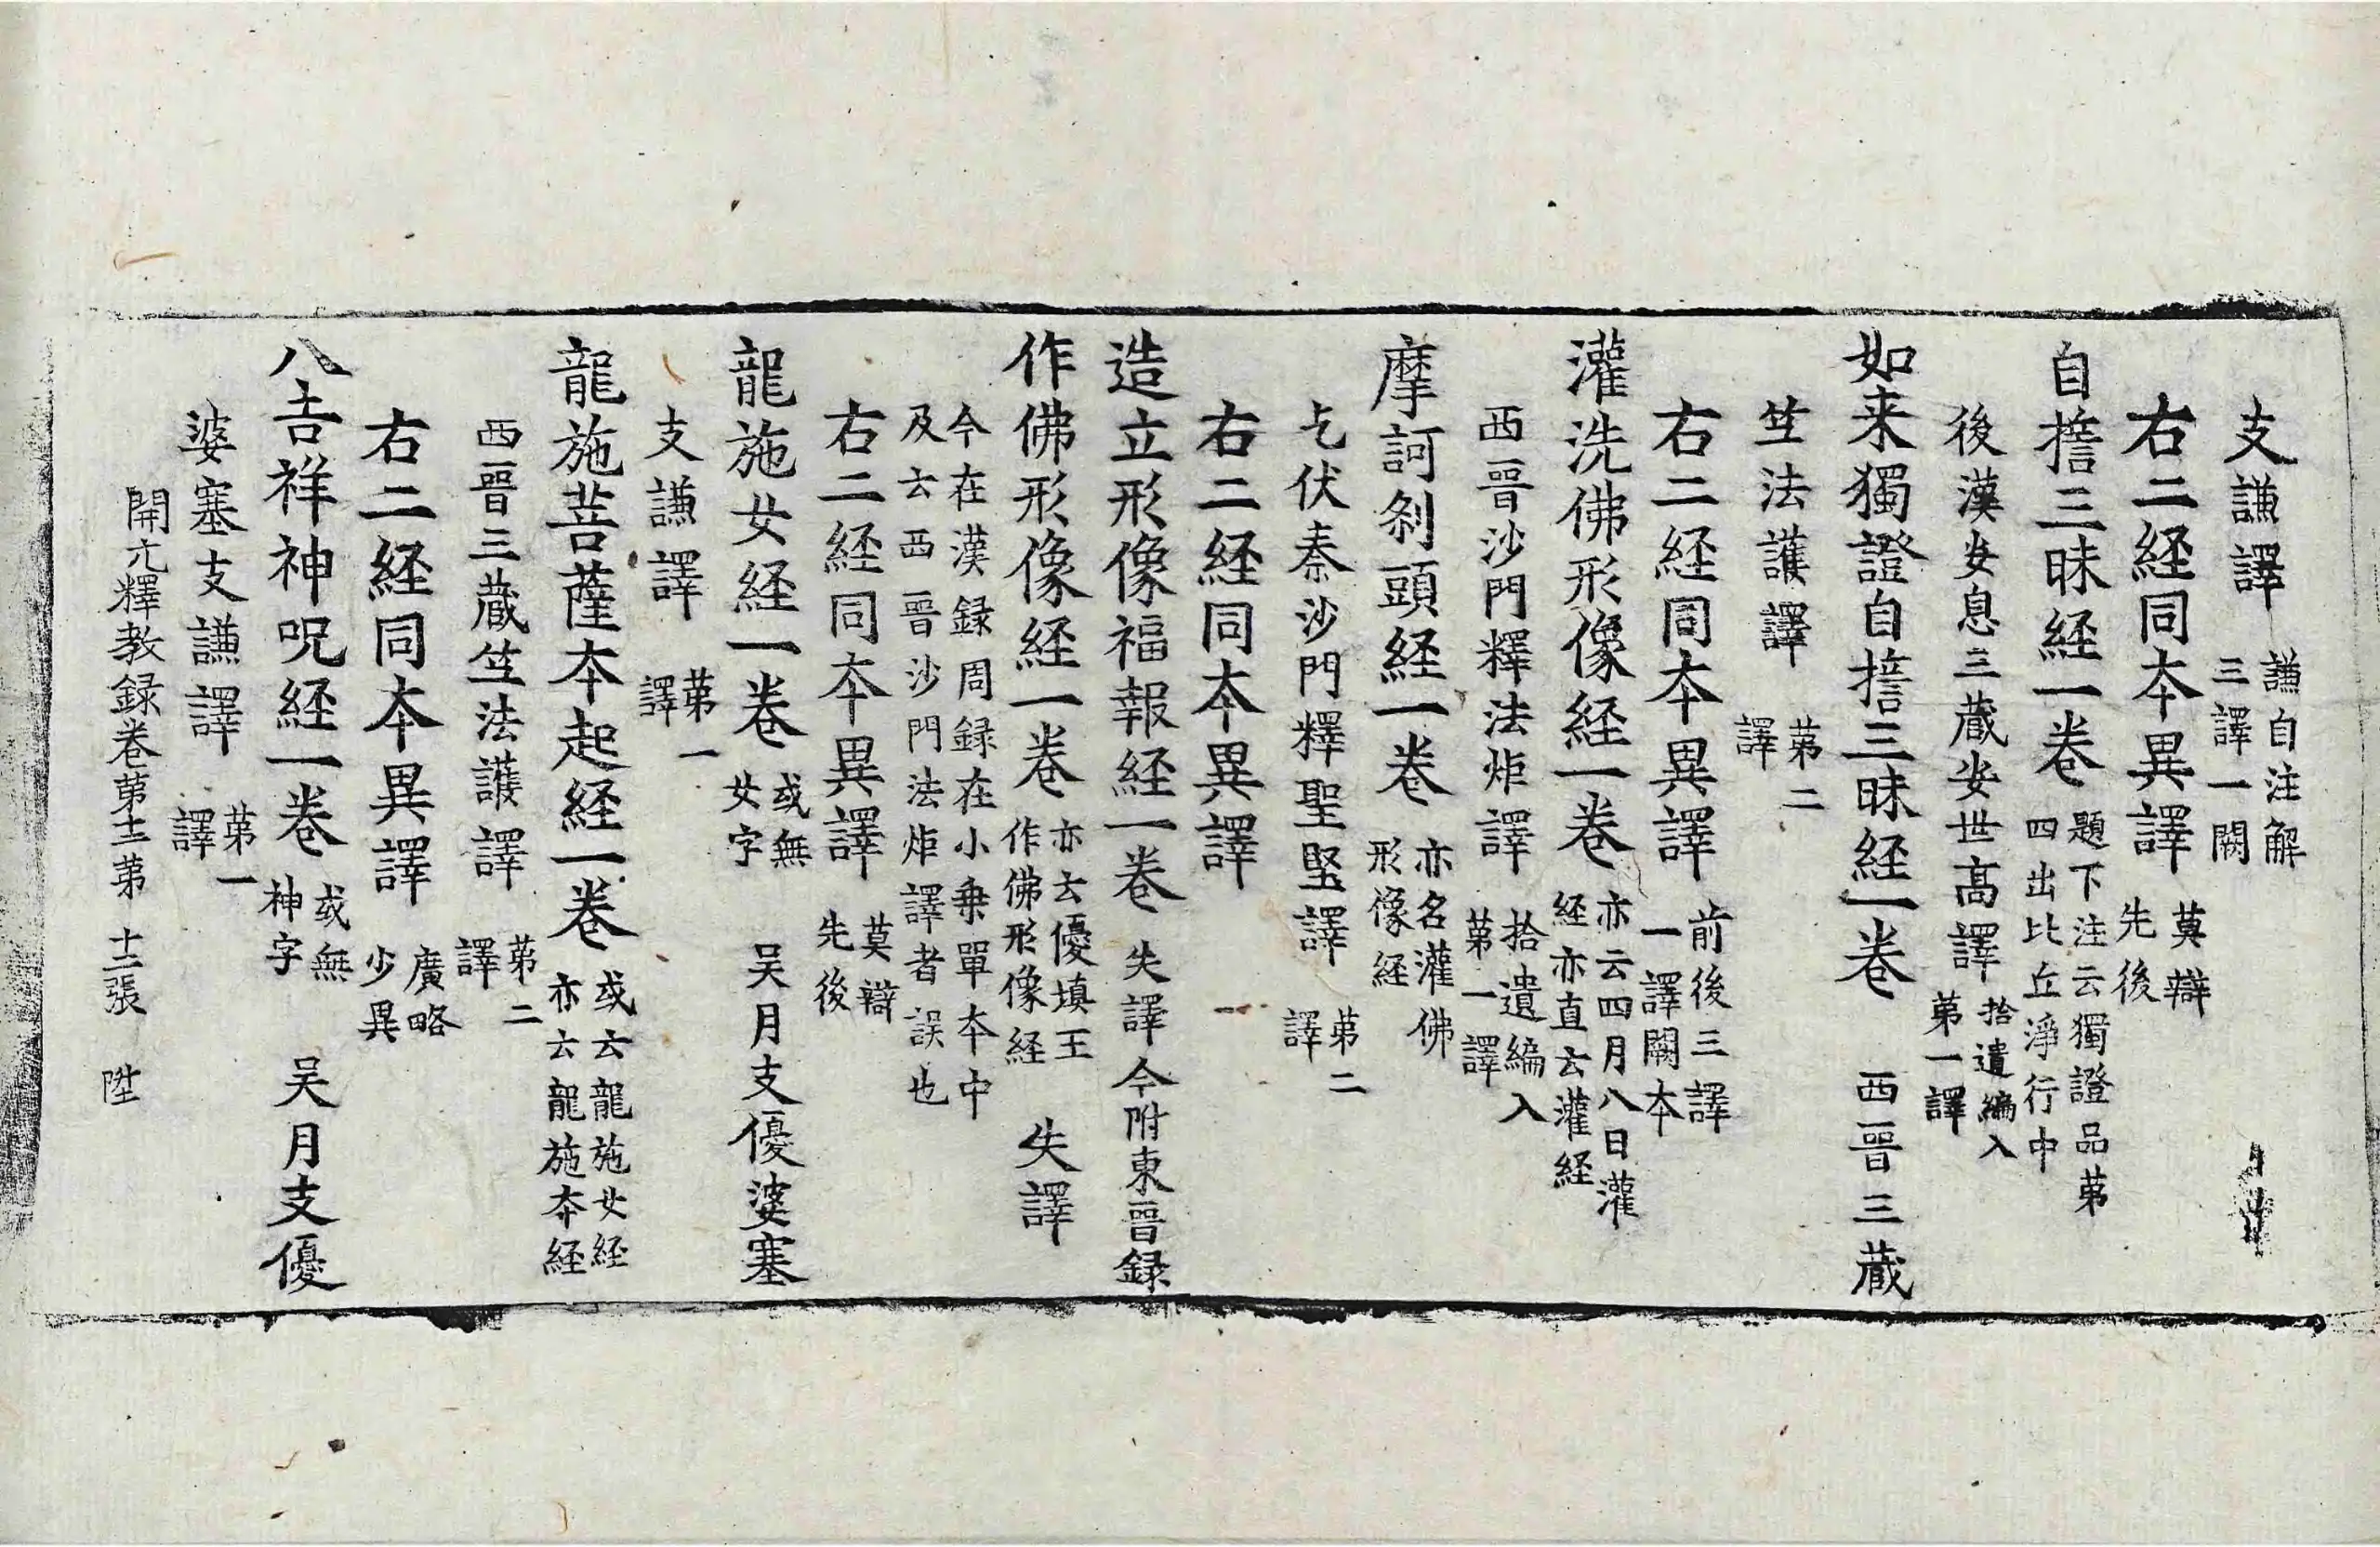 支謙譯 謙自注解三譯一闕
右二経同夲異譯 莫辯先後
自擔三昧経一巻 題下注云獨證品苐四出比丘淨行中
後漢安息三藏安世高譯 拾遺編入苐一譯
如来獨證自擔三昧経一巻 西晉三藏
竺法護譯 苐二譯
右二経同夲異譯 前後三譯一譯闕夲
灌洗佛形像経一巻 亦云四月八日灌経亦直云灌経
西晉沙門釋法炬譯 拾遺編入苐一譯
摩訶剎頭経一巻 亦名灌佛形像経
乞伏秦沙門釋聖堅譯 苐二譯
右二経同夲異譯
造立形像福報経一巻 失譯今附東晉録
作佛形像経一巻 亦云優填王作佛形像経 失譯
今在漢録周録在小乗單夲中及云西晉沙門法炬譯者誤也
右二経同夲異譯 莫辯先後
龍施女経一巻 或無女字 吴月支優婆塞
支謙譯 苐一譯
龍施菩薩夲起経一巻 或云龍施女経亦云龍施夲経
西晉三藏竺法護譯 苐二譯
右二経同夲異譯 廣略少異
八吉祥神呪経一巻 或無神字 吴月支優
婆塞支謙譯 苐一譯
開元釋教録巻苐十二苐 十二張 陞